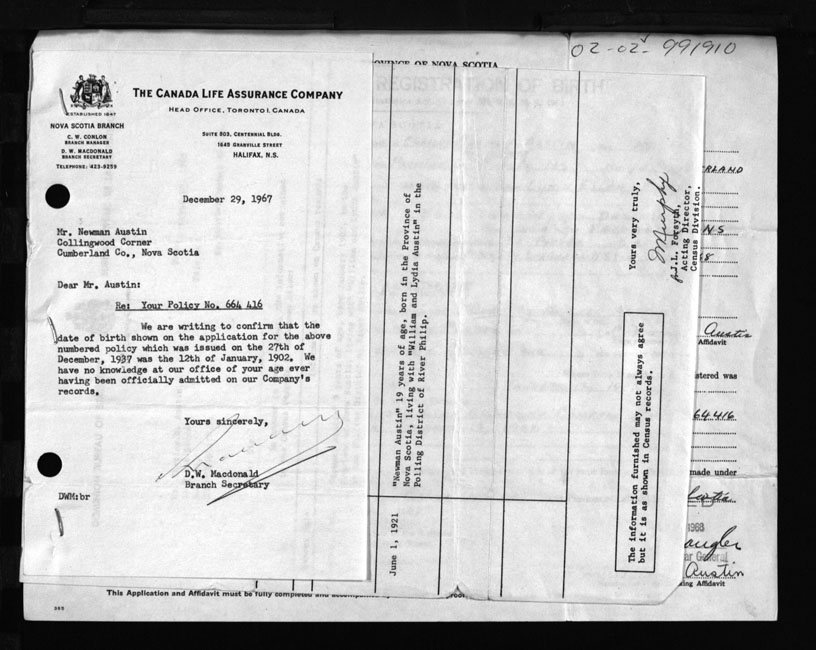 02-02- 991910
ESTABLISHED 1847
THE CANADA LIFE ASSURANCE COMPANY
HEAD OFFICE, TORONTO 1, CANADA
NOVA SCOTIA BRANCH
C. W. CONLON
BRANCH MANAGER
D. W. MACDONALD
BRANCH SECRETARY
TELEPHONE: 423-9259
SUITE 803, CENTENNIAL BLDG.
1645 GRANVILLE STREET
HALIFAX, N.S.
December 29, 1967
Mr. Newman Austin
Collingwood Corner
Cumberland Co., Nova Scotia
Dear Mr. Austin:
Re: Your Policy No. 664 416
We are writing to confirm that the
date of birth shown on the application for the above
numbered policy which was issued on the 27th of
December, 1937 was the 12th of January, 1902. We
have no knowledge at our office of your age ever
having been officially admitted on our Company's
records.
Yours sincerely,
D.W. Macdonald
Branch Secretary
DWM:br
PROVINCE OF NOVA SCOTIA
REGISTRATION OF BIRTH
June 1, 1921
"Newman Austin" 19 years of age, born in the Province of
Nova Scotia, living with "William and Lydia Austin" in the
Polling District of River Philip.
Yours very truly,
J Murphy
for J.L. Forsyth,
Acting Director,
Census Division.
The information furnished may not always agree
but it is as shown in Census records.
ERLAND
NS
Austin
Affidavit
stered was
64 416
made under
1968
General
Austin
king Affidavit
This Application and Affidavit must be fully completed and